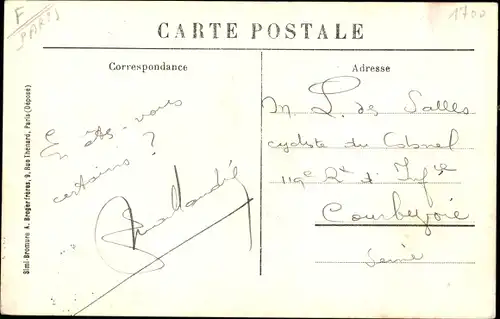 F
PARIS
1700
CARTE POSTALE
Correspondance
Adresse
En êtes-vous
certains ?
M L. des Salles
cycliste du Colonel
119e Rt d' Infie
Courbevoie
Seine
Simi-Bromure A. Breger frères, 9, Rue Thénard, Paris (Déposé)